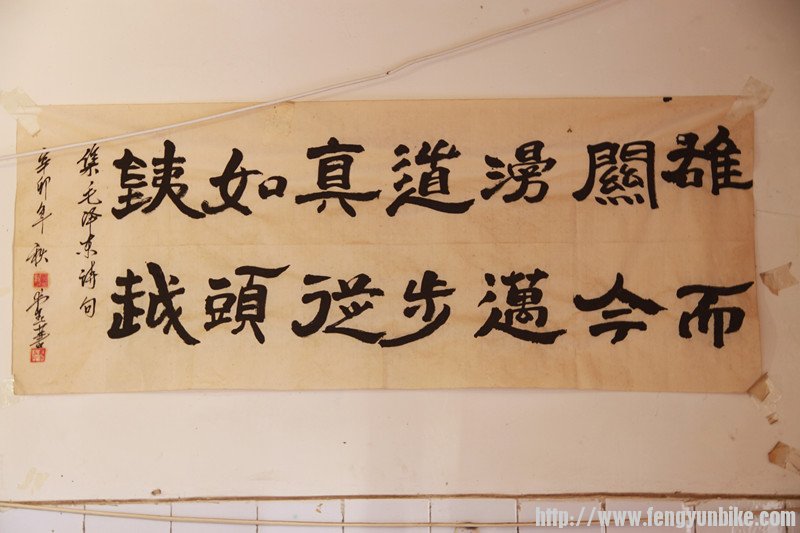 雄關漫道真如銕
而今邁步從頭越
集毛泽东诗句
辛卯年秋
書
http://www.fengyunbike.com